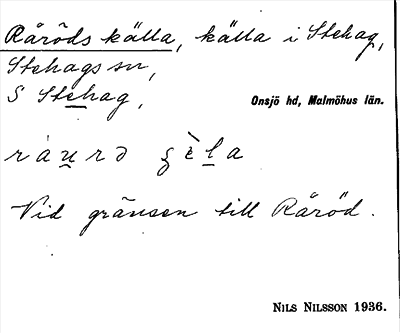 Råröds källa, källa i Stehag,
Stehags sn,
S Stehag,
Onsjö hd, Malmöhus län.
Vid gränsen till Råröd.
NILS NILSSON 1936.